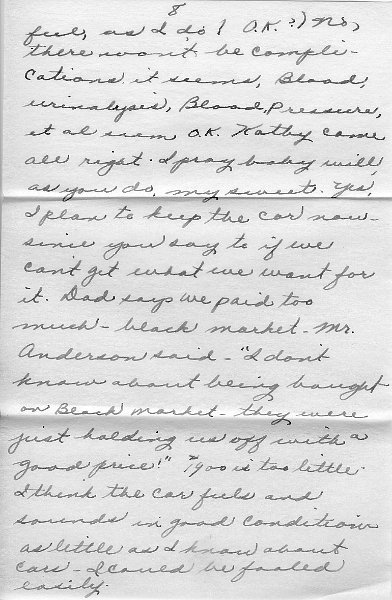 8
feel, as I do! O.K.?) No,
there won't be compli-
cations it seems, Blood,
urinalysis, Blood Pressure,
et al seem O.K. Kathy came
all right. I pray baby will,
as you do, my sweet. Yes,
I plan to keep the car now-
since you say to if we
can't get what we want for
it. Dad says we paid too
much - black market - Mr.
Anderson said - "I don't
know about being bought
on Black Market - they were
just holding us off with a
good price!" 900 is too little.
I think the car feels and
sounds in good condition
as little as I know about
cars - I could be fooled
easily.